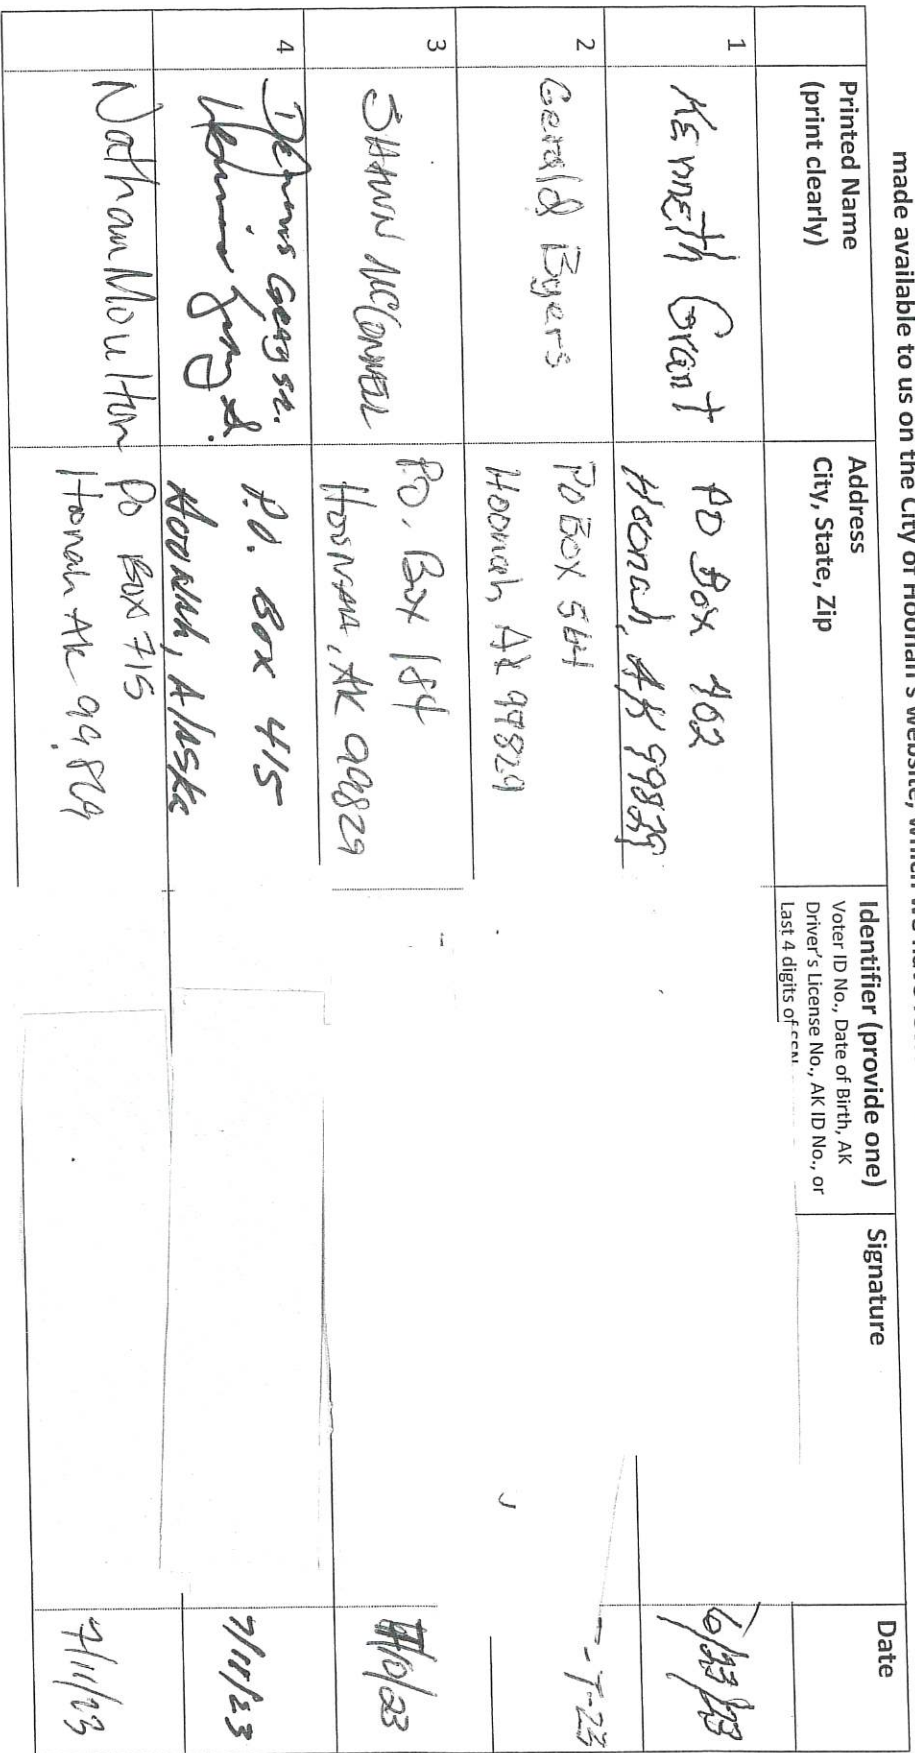 made available to us on the City of Hoonah's website, which we have
Printed Name
(print clearly)
Address
City, State, Zip
Identifier (provide one)
Voter ID No., Date of Birth, AK
Driver's License No., AK ID No., or
Last 4 digits of SSN
Signature
Date
1
KENNETH Grant
PO Box 402
Hoonah, AK 99829
6/23/23
2
Gerald Byers
PO BOX 564
Hoonah, AK 99829
-7-23
3
SHAWN MCCONNELL
P.O. Box 184
HOONAH, AK 99829
/10/23
4
Dennis Gray sr.
Dennis Gray Sr.
P.O. Box 415
HOONAH, Alaska
7/11/23
Nathan Moulton
Po Box 715
Hoonah AK 99829
7/11/23